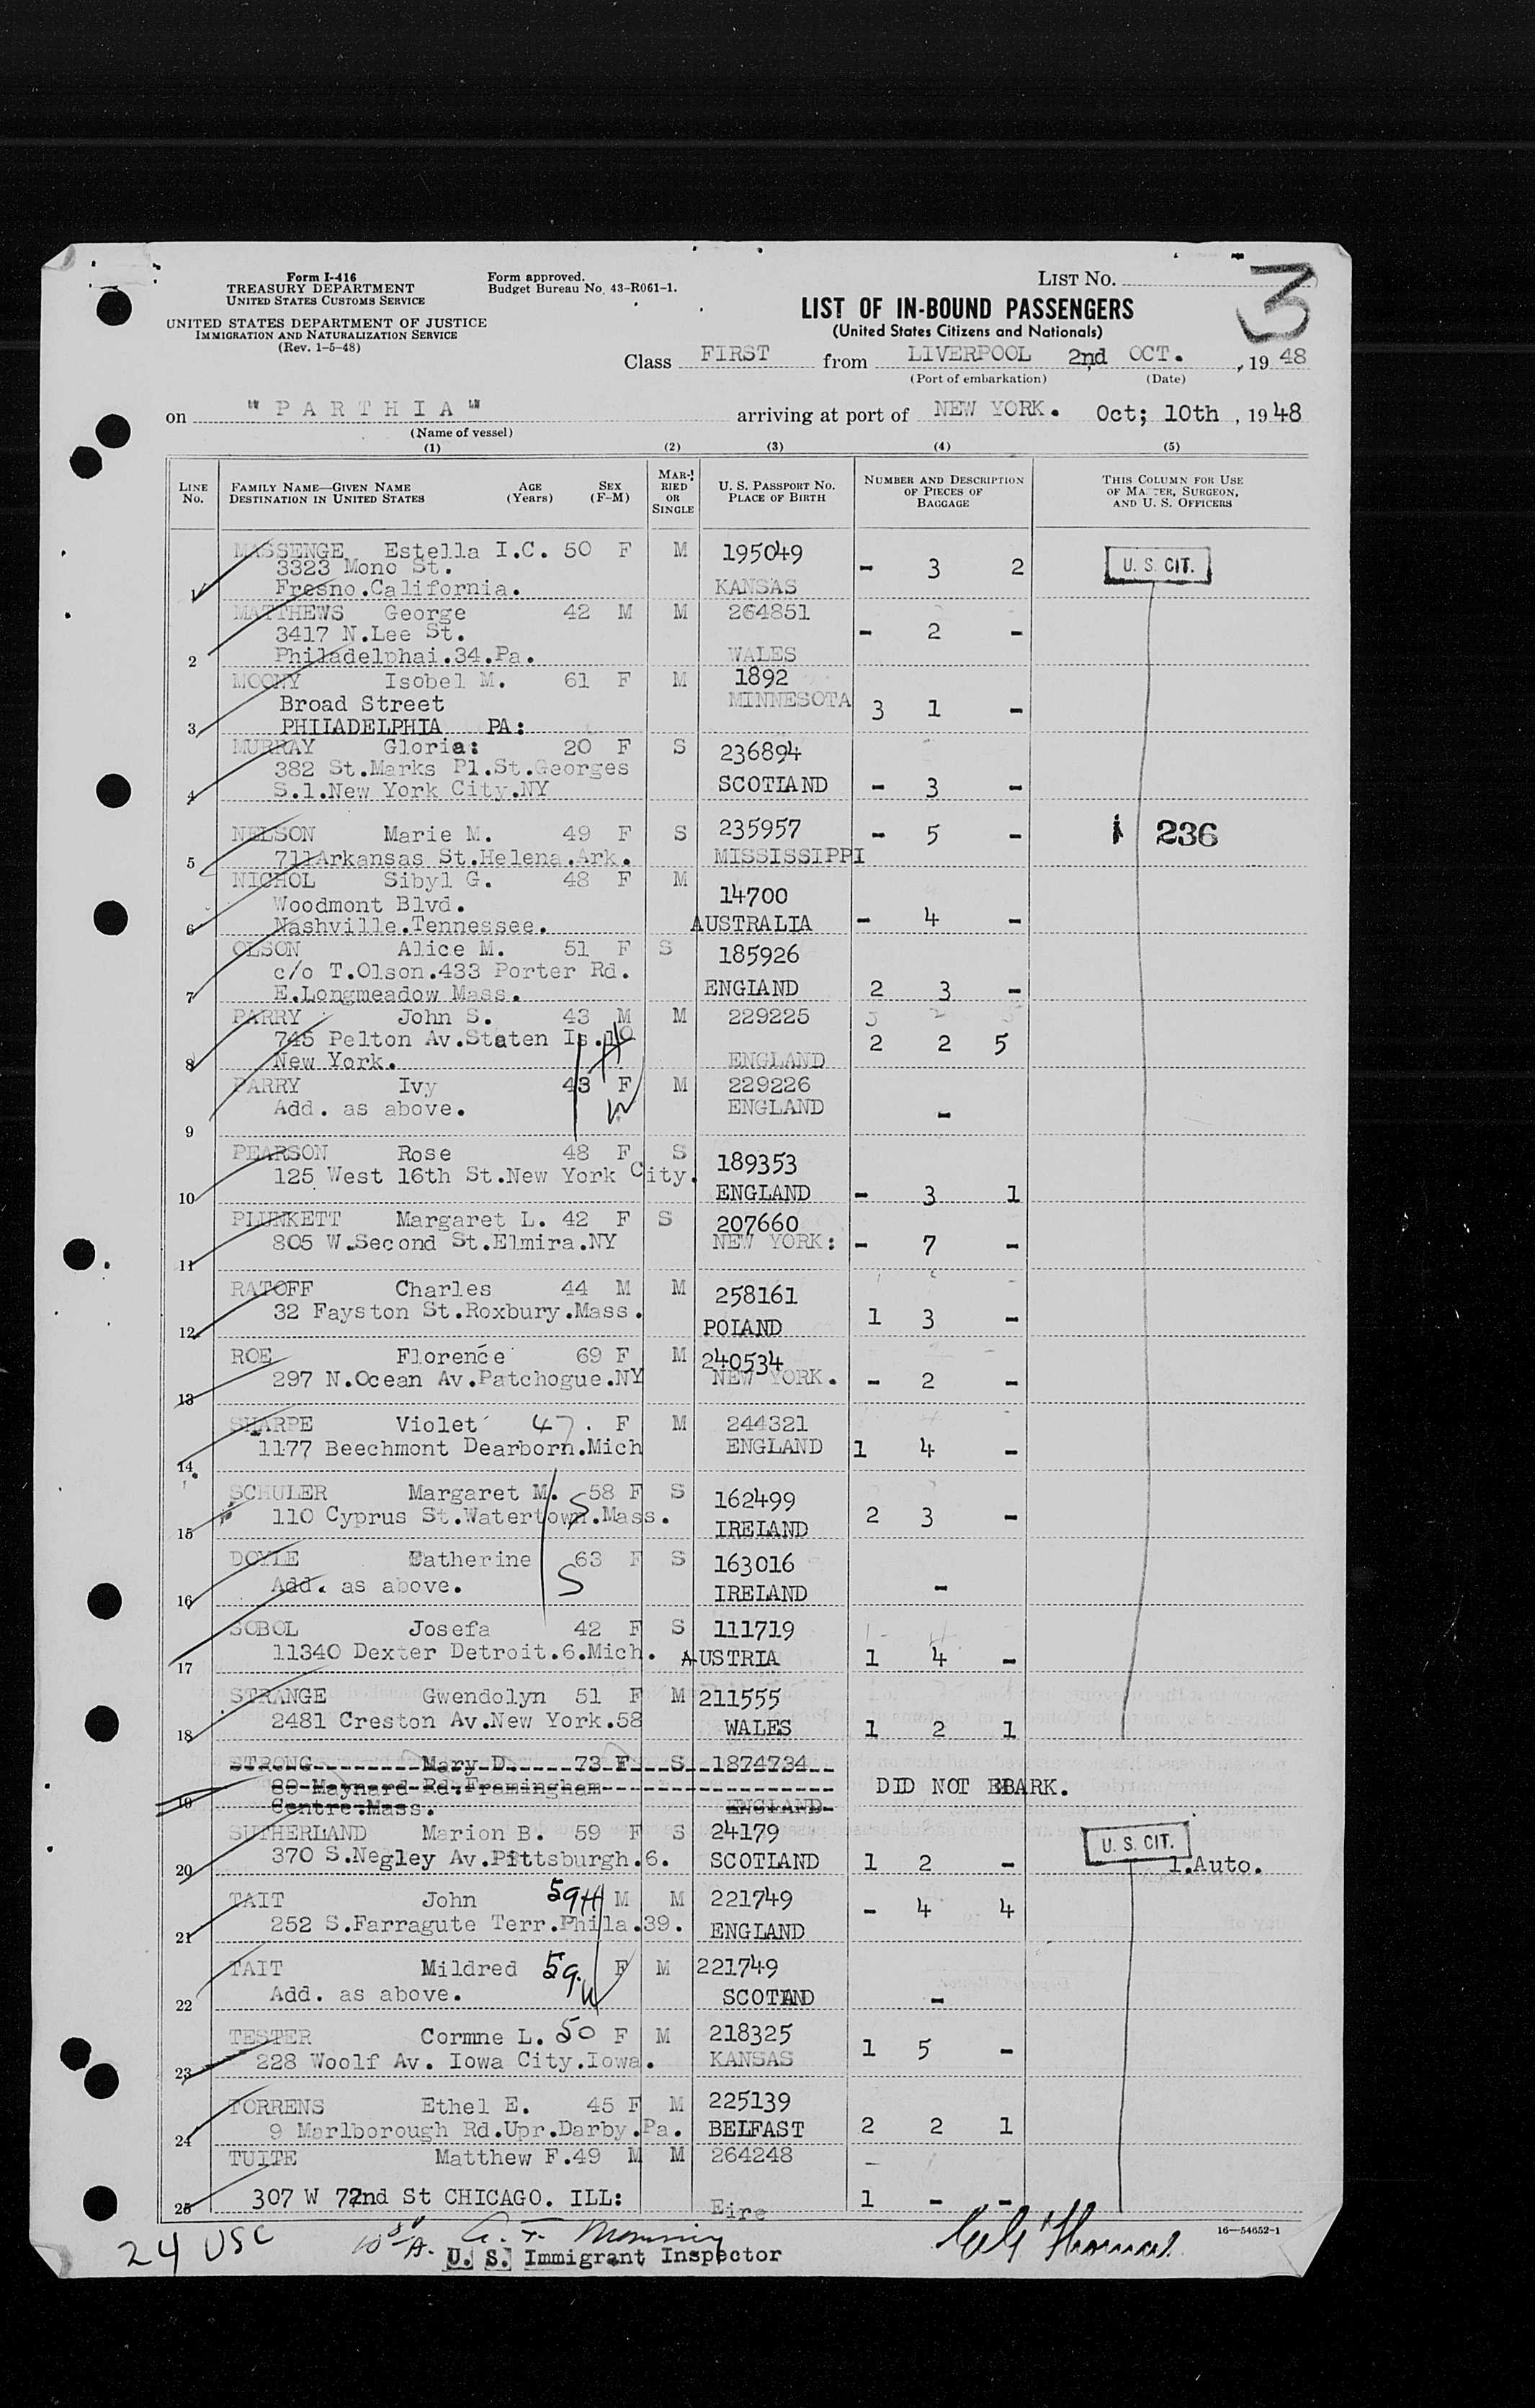 Form I-416
TREASURY DEPARTMENT
UNITED STATES CUSTOMS SERVICE
UNITED STATES DEPARTMENT OF JUSTICE
IMMIGRATION AND NATURALIZATION SERVICE
(Rev. 1-5-48)
Form approved.
Budget Bureau No. 43-R061-1.
LIST NO.
3
LIST OF IN-BOUND PASSENGERS
(United States Citizens and Nationals)
Class FIRST from LIVERPOOL 2nd OCT. , 19 48
(Port of embarkation) (Date)
on "PARTHIA" arriving at port of NEW YORK. Oct; 10th , 1948
(Name of vessel)
(1) (2) (3) (4) (5)
LINE No. FAMILY NAME—GIVEN NAME DESTINATION IN UNITED STATES AGE (Years) SEX (F-M) MARRIED OR SINGLE U. S. PASSPORT NO. PLACE OF BIRTH NUMBER AND DESCRIPTION OF PIECES OF BAGGAGE THIS COLUMN FOR USE OF MASTER, SURGEON, AND U. S. OFFICERS
MASSENGE Estella I.C. 50 F M 195049
3323 Mono St. - 3 2 U. S. CIT.
1 Fresno.California. KANSAS
MATTHEWS George 42 M M 264851
3417 N.Lee St. - 2 -
2 Philadelphai.34.Pa. WALES
MOONY Isobel M. 61 F M 1892
Broad Street MINNESOTA 3 1 -
3 PHILADELPHIA PA:
MURRAY Gloria: 20 F S 236894
382 St.Marks Pl.St.Georges
4 S.1.New York City.NY SCOTLAND - 3 -
NELSON Marie M. 49 F S 235957 - 5 - 236
5 711Arkansas St.Helena.Ark. MISSISSIPPI
NICHOL Sibyl G. 48 F M 14700
Woodmont Blvd.
6 Nashville.Tennessee. AUSTRALIA - 4 -
OLSON Alice M. 51 F S 185926
c/o T.Olson.433 Porter Rd.
7 E.Longmeadow Mass. ENGLAND 2 3 -
PARRY John S. 43 M M 229225
745 Pelton Av.Staten Is.10 2 2 5
8 New York. ENGLAND
PARRY Ivy 43 F M 229226
Add. as above. W ENGLAND -
9
PEARSON Rose 48 F S 189353
125 West 16th St.New York City.
10 ENGLAND - 3 1
PLUNKETT Margaret L. 42 F S 207660
805 W.Second St.Elmira.NY NEW YORK: - 7 -
11
RATOFF Charles 44 M M 258161
32 Fayston St.Roxbury.Mass. 1 3 -
12 POLAND
ROE Florence 69 F M 240534
297 N.Ocean Av.Patchogue.NY NEW YORK. - 2 -
13
SHARPE Violet 47. F M 244321
1177 Beechmont Dearborn.Mich ENGLAND 1 4 -
14
SCHULER Margaret M. 58 F S 162499
110 Cyprus St.Watertown.Mass. S 2 3 -
15 IRELAND
DOYLE Catherine 63 F S 163016
Add. as above. S IRELAND -
16
SOBOL Josefa 42 F S 111719
11340 Dexter Detroit.6.Mich. AUSTRIA 1 4 -
17
STRANGE Gwendolyn 51 F M 211555
2481 Creston Av.New York.58 WALES 1 2 1
18
STRONG Mary D. 73 F S 1874734
89 Maynard Rd.Framingham DID NOT EMBARK.
19 Centre.Mass. ENGLAND
SUTHERLAND Marion B. 59 F S 24179 U. S. CIT.
20 370 S.Negley Av.Pittsburgh.6. SCOTLAND 1 2 - 1.Auto.
TAIT John 59 H M M 221749 - 4 4
21 252 S.Farragute Terr.Phila.39. ENGLAND
TAIT Mildred 59. W F M 221749
22 Add. as above. SCOTLAND -
TESTER Cormne L. 50 F M 218325 1 5 -
23 228 Woolf Av. Iowa City.Iowa. KANSAS
TORRENS Ethel E. 45 F M 225139
24 9 Marlborough Rd.Upr.Darby.Pa. BELFAST 2 2 1
TUITE Matthew F.49 M M 264248
25 307 W 72nd St CHICAGO. ILL: Eire 1 - -
24 USC
U. S. Immigrant Inspector
16—54652-1